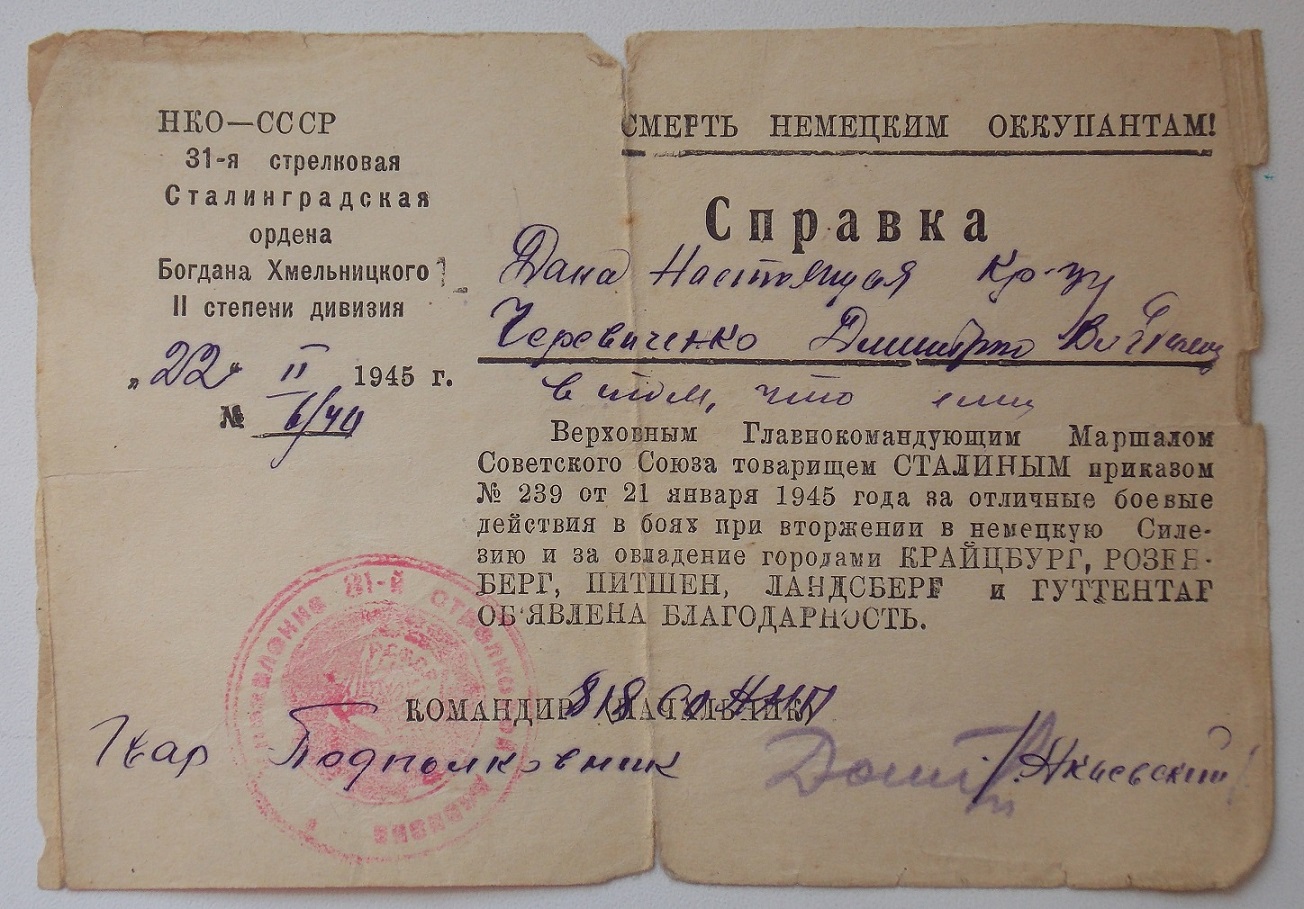 НКО—СССР
31-я стрелковая
Сталинградская
ордена
Богдана Хмельницкого
II степени дивизия
„22“ II 1945 г.
№ 6/40
СМЕРТЬ НЕМЕЦКИМ ОККУПАНТАМ!
Справка
Дана Настоящая кр-цу
Черевиченко Дмитрию
в том, что ему
Верховным Главнокомандующим Маршалом
Советского Союза товарищем СТАЛИНЫМ приказом
№ 239 от 21 января 1945 года за отличные боевые
действия в боях при вторжении в немецкую Силе-
зию и за овладение городами КРАЙЦБУРГ, РОЗЕН-
БЕРГ, ПИТШЕН, ЛАНДСБЕРГ и ГУТТЕНТАГ
ОБ'ЯВЛЕНА БЛАГОДАРНОСТЬ.
КОМАНДИР (НАЧАЛЬНИК) 818
Гвар Подполковник
Управление 31-й стрелковой дивизии